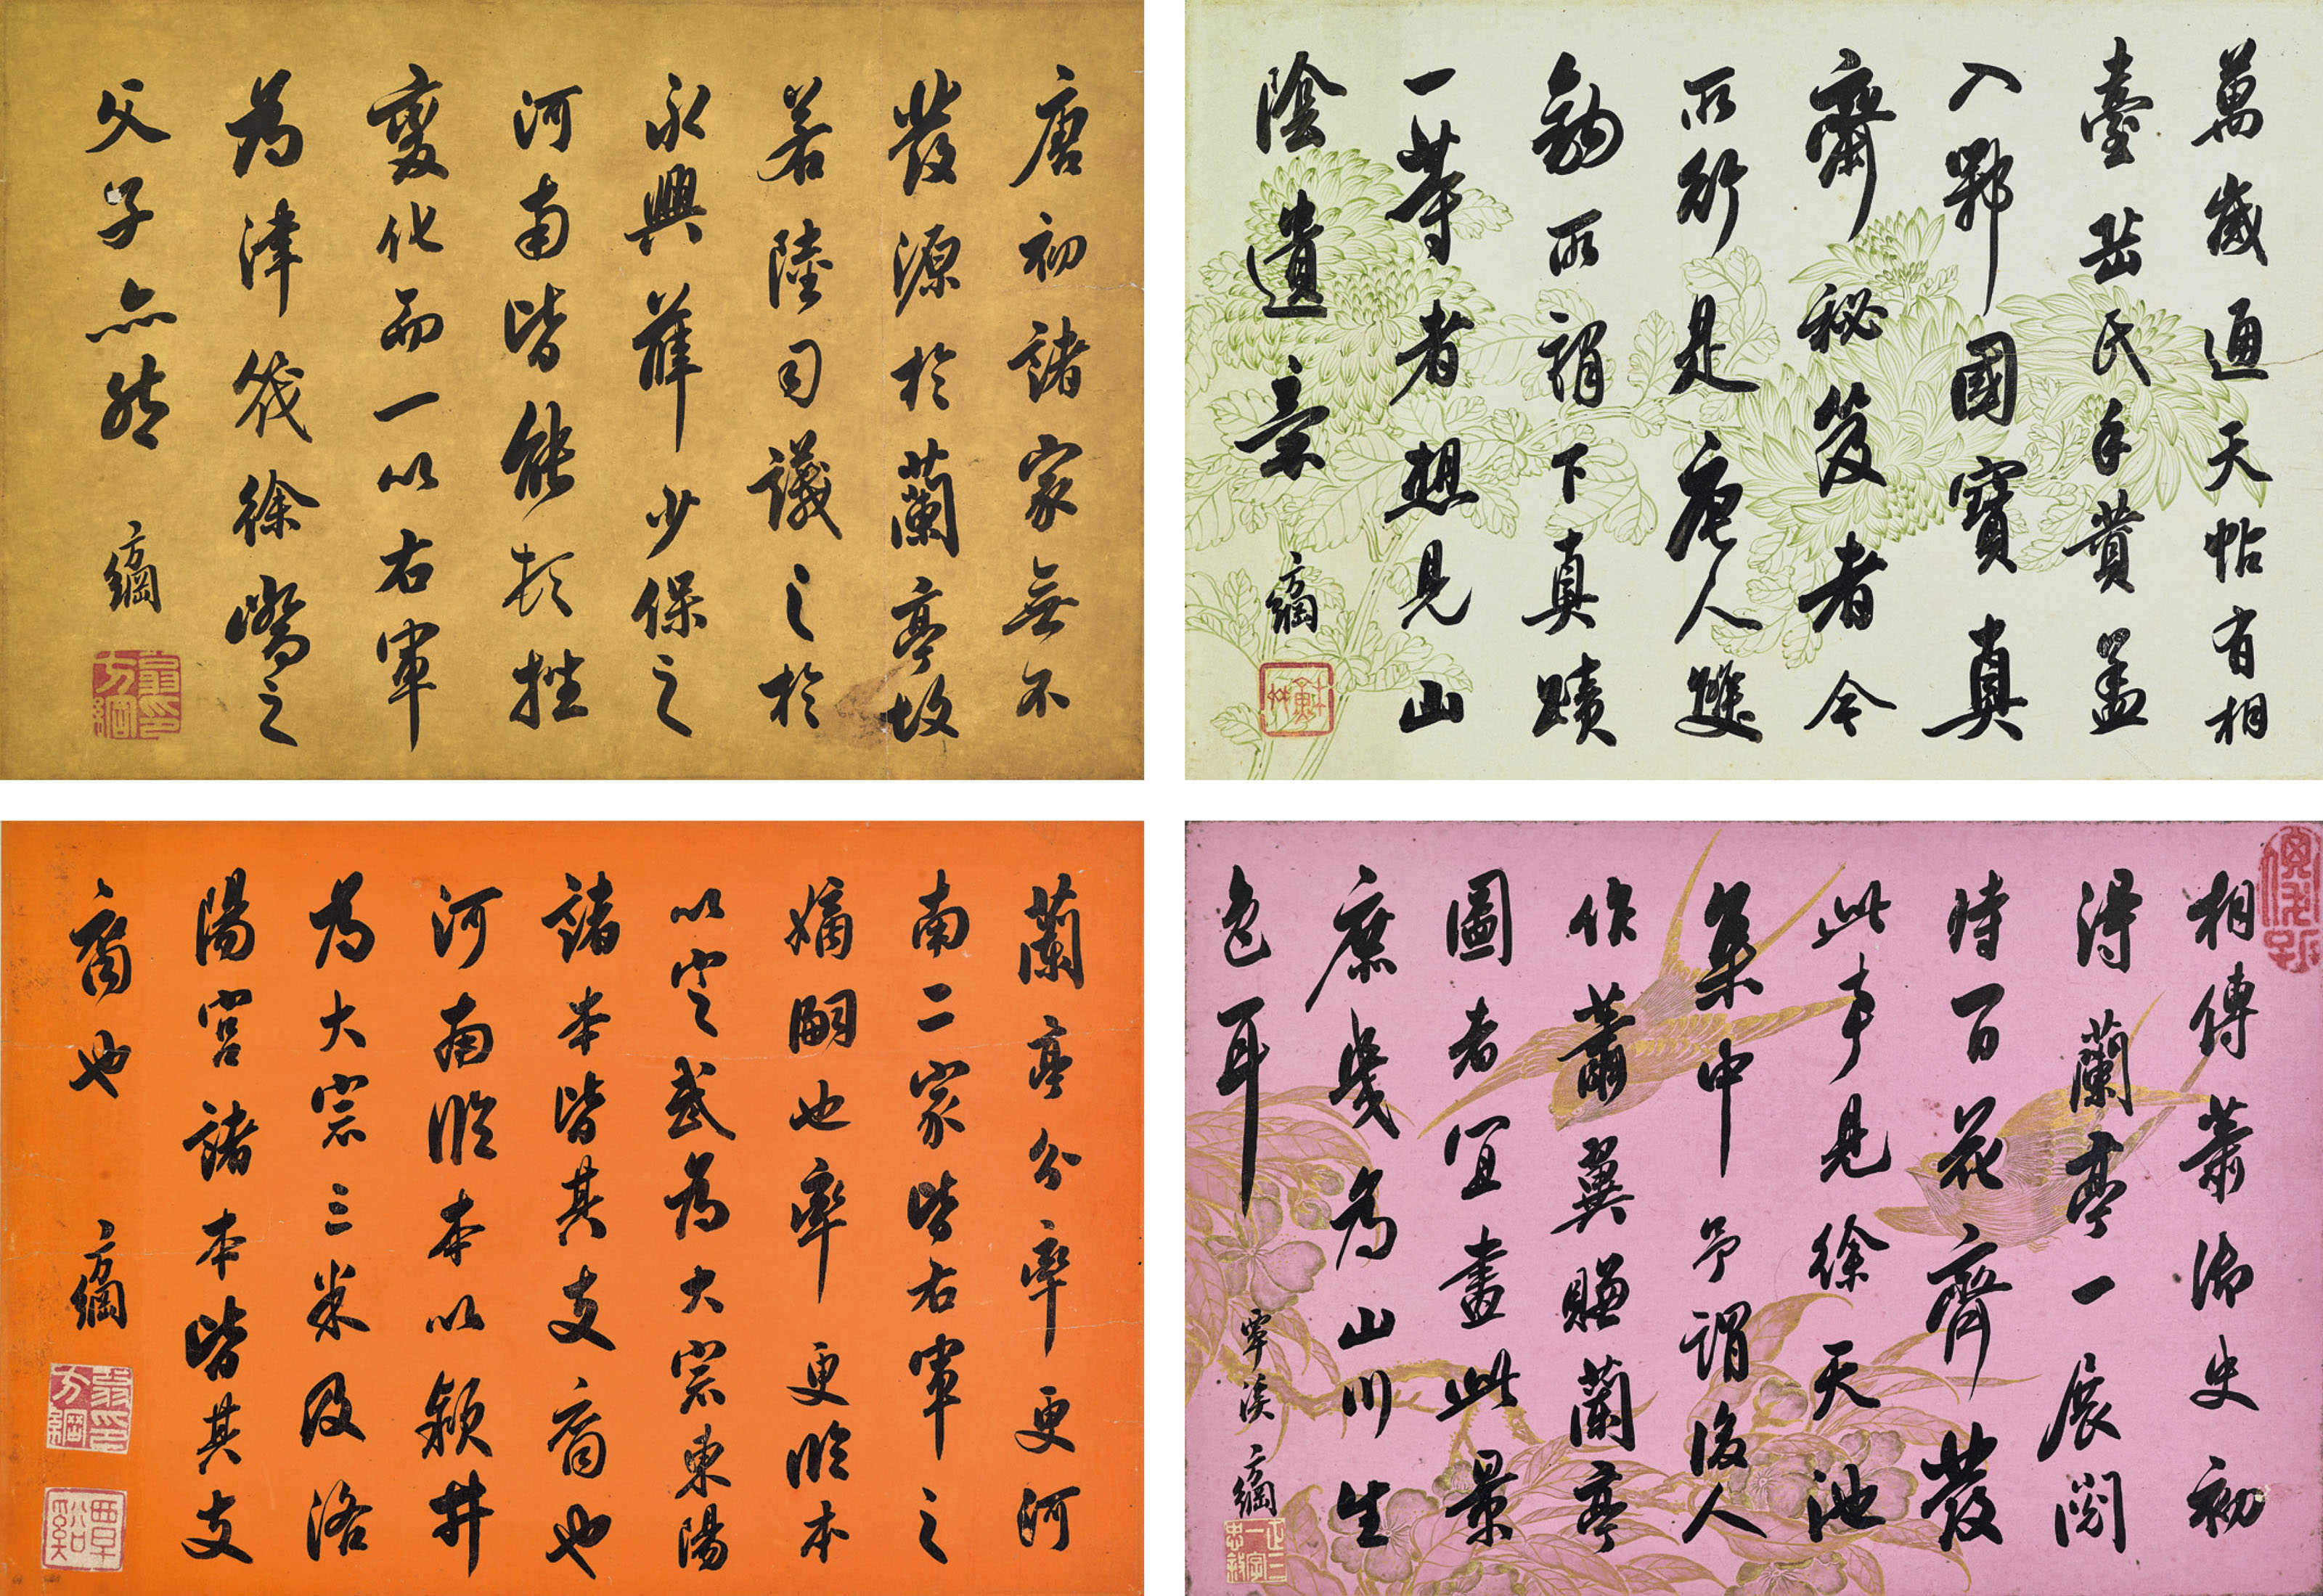 唐初諸家無不
發源於蘭亭故
若陸司議之於
永興薛少保之
河南皆能頓挫
變化而一以右軍
為津筏徐嶠之
父子亦然 方綱
翁方綱印
萬歲通天帖有相
臺岳氏手贊蓋
入鄴國寶真
齋秘笈者今
所行是唐人雙
鈎所謂下真蹟
一等者想見山
陰遺意 方綱
蘭亭分率更河
南二家皆右軍之
嫡嗣也率更臨本
以定武為大宗東陽
諸本皆其支裔也
河南臨本以潁井
為大宗三米及洛
陽宮諸本皆其支
裔也 方綱
翁方綱印
覃谿
相傳蕭御史初
得蘭亭一展閱
時百花齊發
此事見徐天池
集中予謂後人
作蕭翼賺蘭亭
圖者宜畫此景
庶幾為山川生
色耳 覃溪 方綱